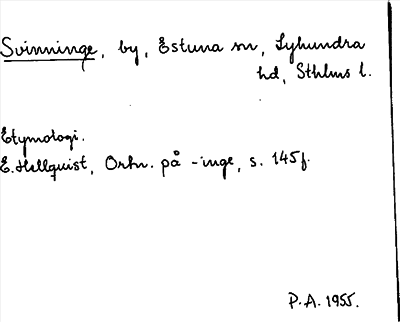 Svinninge, by, Estuna sn, Lyhundra
hd, Sthlms l.
Etymologi.
E. Hellquist, Ortn. på -inge, s. 145f.
P.A. 1955.